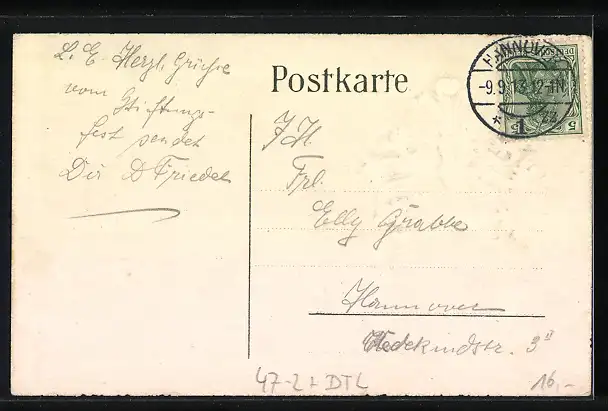 L. E. Herzl. Grüsse
vom Stiftungs-
fest sendet
Dir D Friedel
Postkarte
HANNOVER
-9.9.13.12-1N
* 1
DEUTSCHES
5
5
Frl.
Elly Grabbe
Hannover
Wedekindstr. 3 II
47-2+DTL
16,-